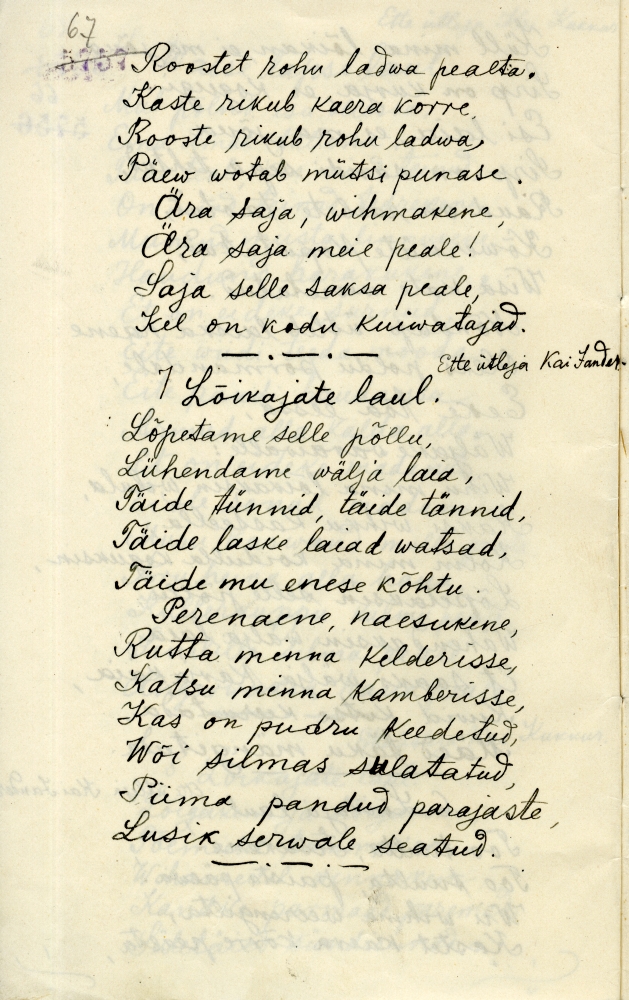 67
Roostet rohu ladwa pealta.
Kaste rikub kaera kõrre,
Rooste rikub rohu ladwa,
Päew wõtab mütsi punase.
Ära saja, wihmakene,
Ära saja meie peale!
Saja selle saksa peale,
Kel on kodu kuiwatajad.
Ette ütleja Kai Sander.
7 Lõikajate laul.
Lõpetame selle põllu,
Lühendame wälja laia,
Täide tünnid, täide tännid,
Täide laske laiad watsad,
Täide mu enese kõhtu.
Perenaene, naesukene,
Rutta minna kelderisse,
Katsu minna kamberisse,
Kas on pudru keedetud,
Wõi silmas sulatatud,
Piima pandud parajaste,
Lusik serwale seatud.